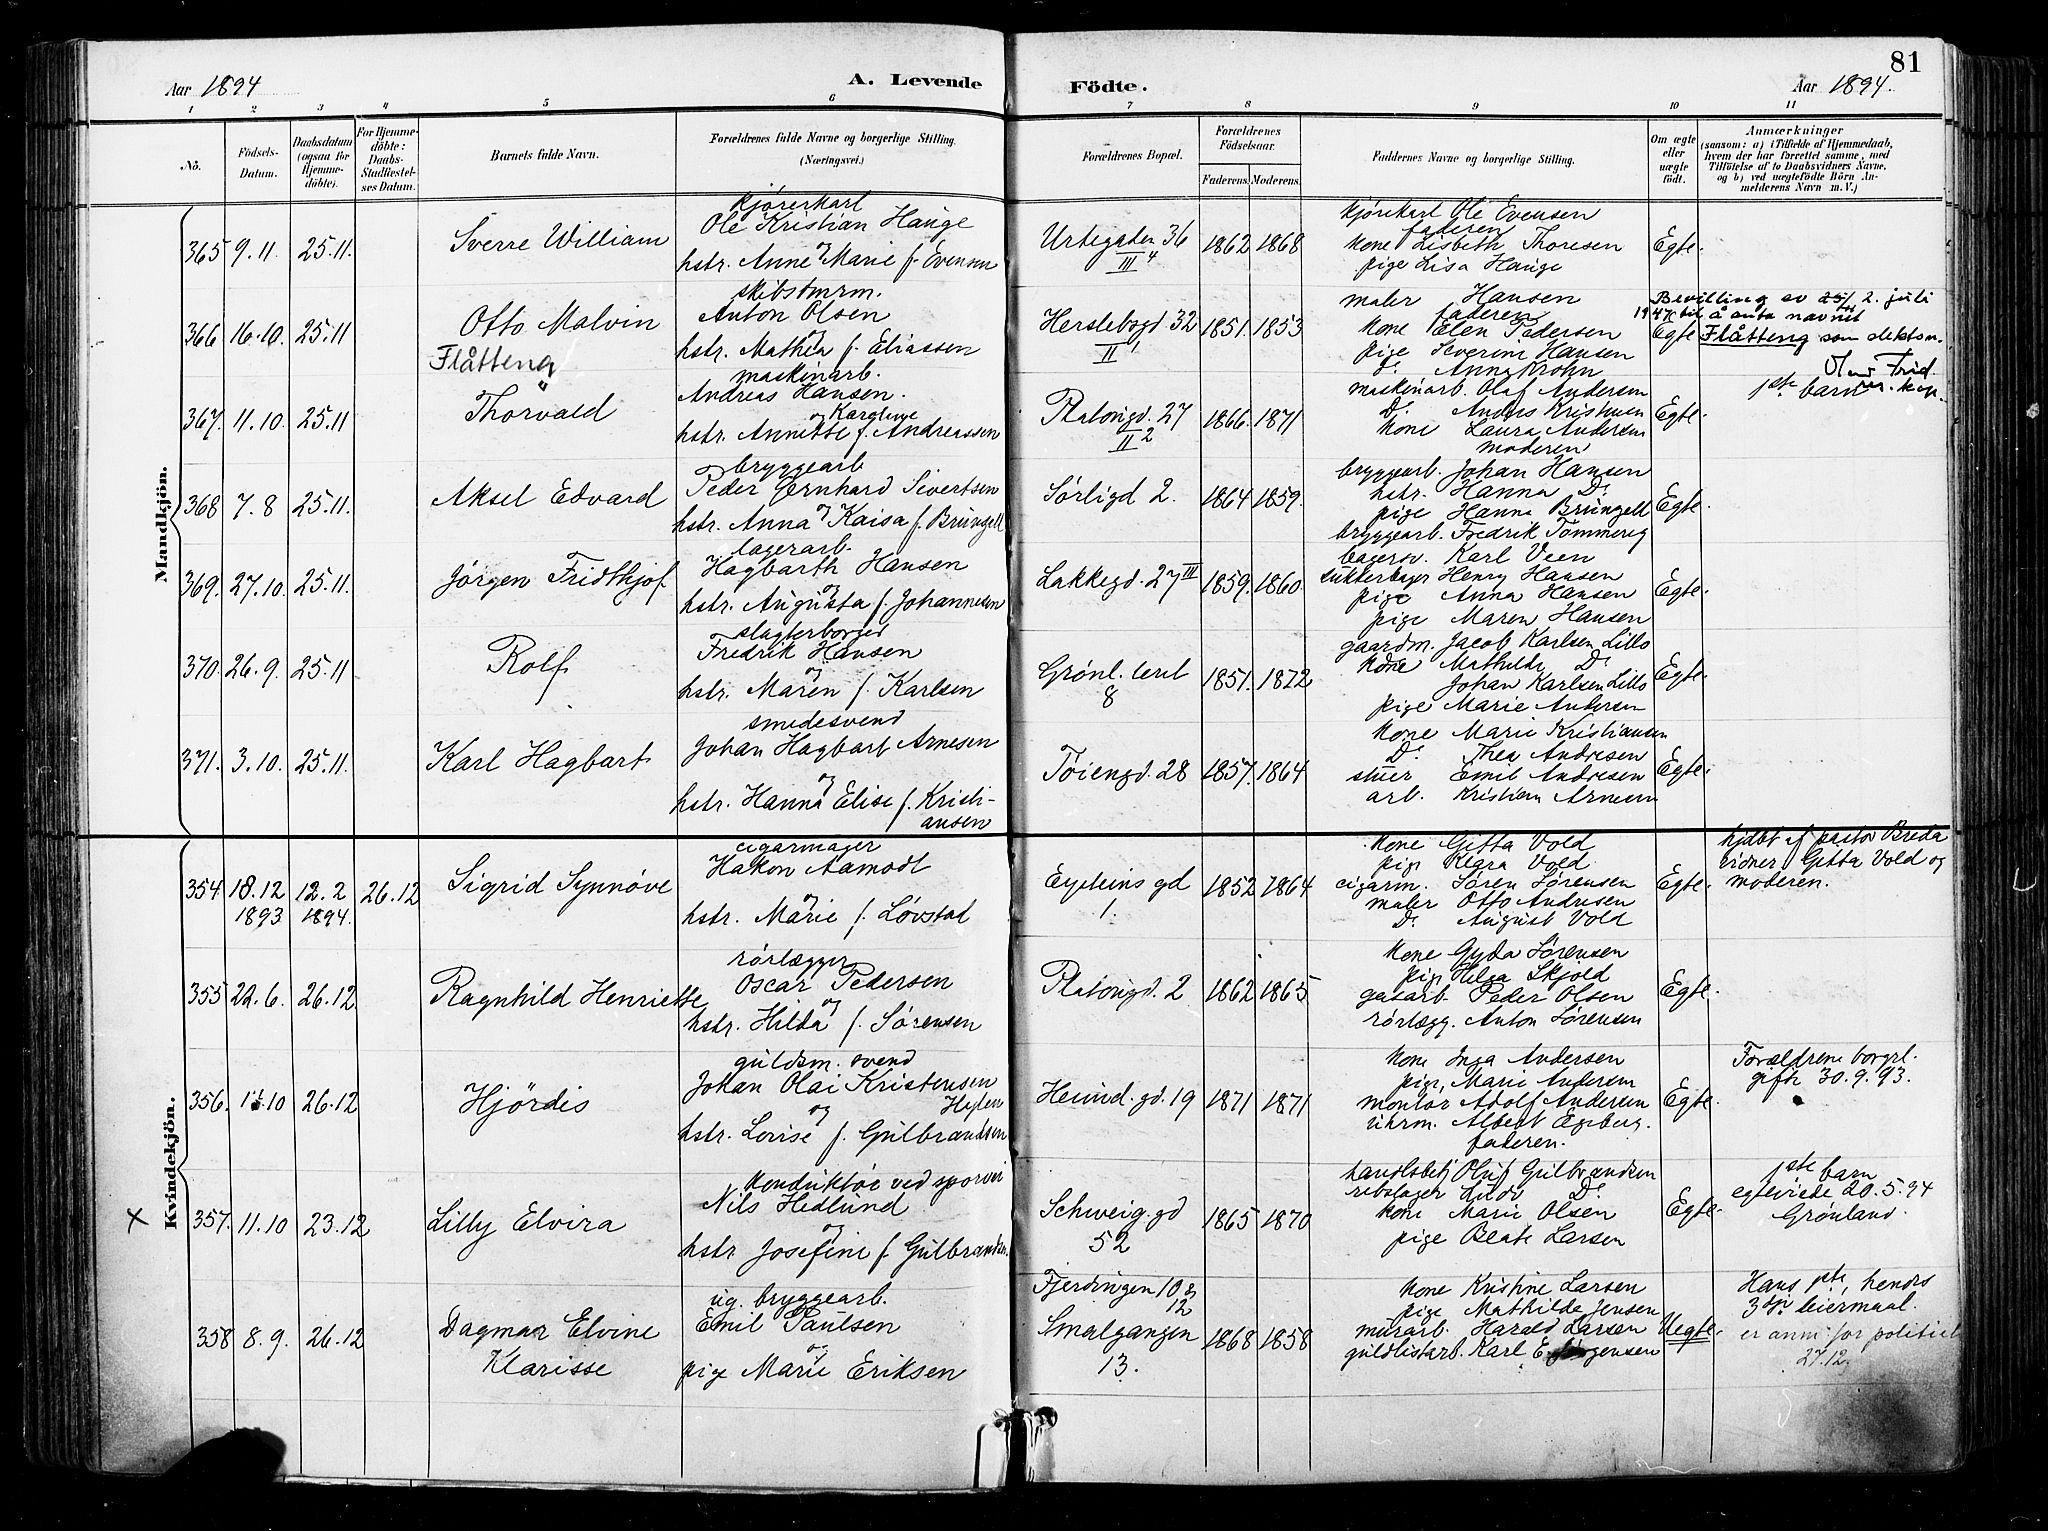 81
Aar 1894
A. Levende
Födte.
Aar 1894.
1 2 3 4 5 6 7 8 9 10 11
No.
Födsels-
Datum.
Daabsdatum
(ogsaa for
Hjemme-
döbte).
For Hjemme-
döbte:
Daabs-
Stadfæstel-
ses Datum.
Barnets fulde Navn.
Forældrenes fulde Navne og borgerlige Stilling.
(Næringsvei.)
Forældrenes Bopæl.
Forældrenes
Födselsaar.
Faderens. Moderens.
Faddernes Navne og borgerlige Stilling.
Om ægte
eller
uægte
født.
Anmærkninger
(saasom: a) i Tilfælde af Hjemmedaab,
hvem der har forrettet samme, med
Tilföielse af to Daabsvidners Navne,
og b) ved uægtefödte Börn An-
melderens Navn m. V.)
Mandkjön.
365 9.11. 25.11.
Sverre William
kjørerkarl
Ole Kristian Hauge
og
hstr. Anne Marie f. Evensen
Urtegaden 36
III 4
1862 1868
kjørekarl Ole Evensen
faderen
kone Lisbeth Thoresen
pige Lisa Hauge
Egte.
366 16.10. 25.11
Otto Malvin
Flåtteng
skibstmrm.
Anton Olsen
og
hstr. Mathea f. Eliassen
Herslebsgd 32
II 1
1851. 1853
maler Hansen
faderen
kone Elen Pedersen
pige Severine Hansen
Do Anna Krohn
Egte
Bevilling av 2. juli
1947 til å anta navnet
Flåtteng som slektsn.
367. 11.10. 25.11
Thorvald
maskinarb.
Andreas Hansen.
og Kargluve
hstr. Annette f. Andreassen
Platongd. 27
II 2
1866. 1871
maskinarb. Olaf Andersen
Do. Anders Kristiansen
kone Laura Andersen
moderen
Egte.
1ste barn
368 7.8 25.11.
Aksel Edvard
bryggearb
Peder Gernhard Sivertsen
og
hstr. Anna Kaisa f. Brungell
Sörligd 2.
1864 1859.
bryggearb. Johan Hansen
hstr. Hanna Do
pige Hanna Brungell
bryggearb. Fredrik Tömmerey
Egte.
369. 27.10. 25.11.
Jørgen Fridthjof
lagerarb.
Hagbarth Hansen
og
hstr. Augusta f. Johannesen
Lakkegd. 27 III
1859. 1860.
bagersv. Karl Veen
sukkerbager Henry Hansen
pige Anna Hansen
pige Maren Hansen
Egte.
370. 26.9. 25.11
Rolf
slagterborger
Fredrik Hansen
og
hstr. Maren f. Karlsen
Grønl. leret
8
1851. 1872
gaardm. Jacob Karlsen Lillo
kone Mathilde Do
Johan Karlsen Lillo
pige Marie Andersen
Egte.
371. 3.10. 25.11.
Karl Hagbart
smedesvend
Johan Hagbart Arnesen
og
hstr. Hanna Elise f. Kristi-
ansen
Töiengd. 28
1857. 1864
kone Marie Kristiansen
Do. Thea Andresen
Emil Andresen
arb. Kristian Arnesen
Egte.
Kvindekjön.
354 18.12 12.2 26.12
1893 1894.
Sigrid Synnøve
cigarmager
Hakon Aamodt
og
hstr. Marie f. Løvstad
Eysteins gd
1.
1852 1864
kone Gitta Vold
pige Klara Vold
cigarm. Sören Sörensen
maler Otto Andresen
Do. August Vold
Egte.
hjdbt af pastor Breda
vidner Gitta Vold og
moderen.
355 22.6. 26.12
Ragnhild Henriette
rörlægger
Oscar Pedersen
og
hstr. Hilda f. Sörensen
Platongd. 2
1862 1865
kone Gyda Sörensen
pige Helga Skjold
gasarb. Peder Olsen
rörlægg. Anton Sörensen
Egte.
356. 11.10 26.12
Hjördis
guldsm. svend
Johan Olai Kristensen
og Hylen
hstr. Lovise f. Gulbrandsen
Heimd. gd. 19
1871 1871
kone Inga Andersen
pige, Marie Andersen
montör Adolf Andersen
uhrm. Albert Egeberg.
faderen.
Egte.
Forældrene borgrl.
gifte 30.9.93.
x
357. 11.10 23.12
Lilly Elvira
konduktör ved sporvei
Nils Hedlund
og
hstr Josefine f. Gulbrandsen
Schweig. gd
52
1865 1870
handlsbetj Oluf Gulbrandsen
Do.
kone Marie Olsen
pige Beate Larsen
Egte.
1ste barn
egteviede 20.5.94
Grönland.
358 8.9. 26.12
Dagmar Elvine
Klarisse
ug. bryggearb.
Emil Paulsen
og
pige Marie Eriksen
Fjerdingen 10 &
12
Smalgangen
13.
1868 1858
kone Kristine Larsen
pige Mathilda Jensen
murarb. Harald Larsen
guldlistarb. Karl E Jörgensen
Uegte.
Hans 1ste, hendes
3die leiermaal.
er anm. for politiet
27.12.